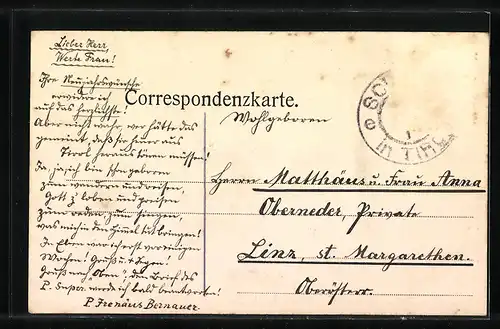 Lieber Herr
Werte Frau!
Ihre Neujahrswünsche
erwidere ich
auf das herzlichste!
Aber nicht wahr, wer hätte das
gemeint, daß sie heuer aus
Tirol heraus tönen müssen!
Ja, ja, ich bin schon geboren
zum wandern und reisen,
Gott z' loben und preisen
zum reden, zum singen,
was mich in den Himel tut bringen!
Wochen! Gruß u. Segen!
Gruß nach "Oben", den Brief des
P. Super. werde ich bald beantworten!
P. Irenäus Bernauer.
Correspondenzkarte.
Wohlgeboren
Herrn Matthäus u. Frau Anna
Oberneder, Private
Linz, st. Margarethen.
Oberösterr.